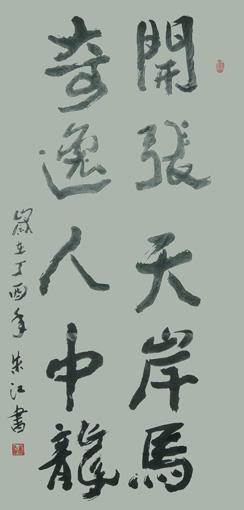 開張天岸馬
奇逸人中龍
歲在丁酉年 朱江書